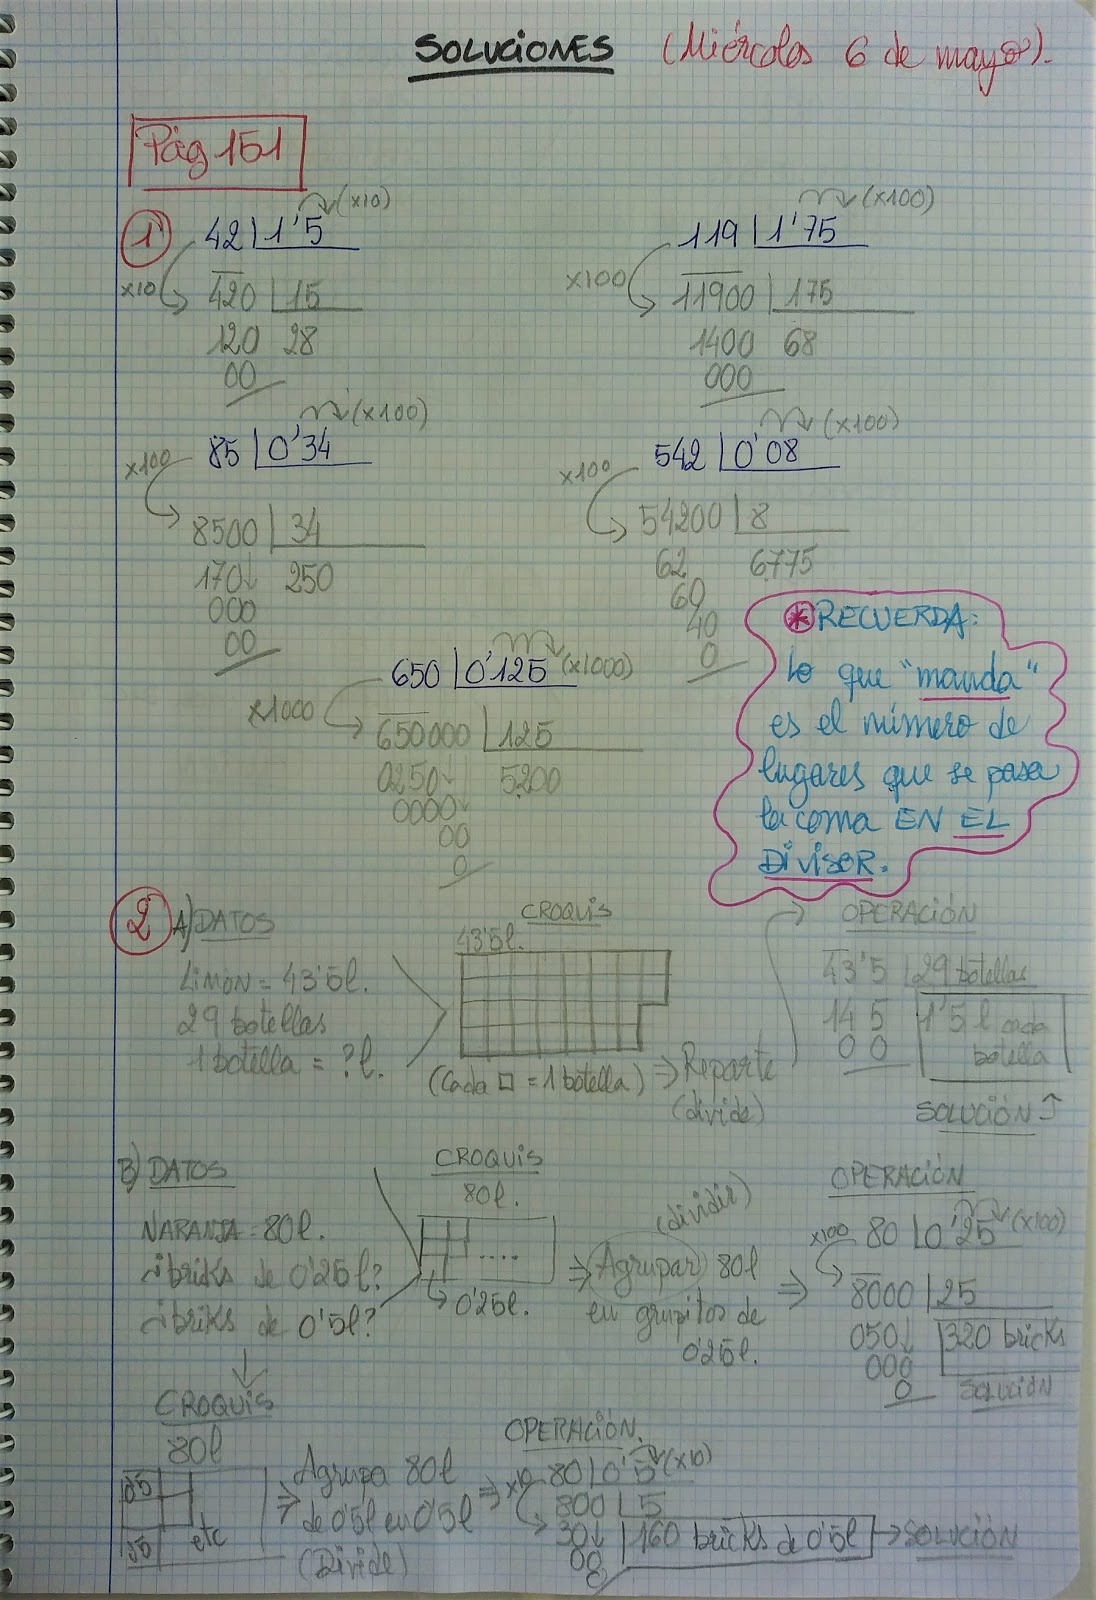 SOLUCIONES (Miércoles 6 de mayo).
Pág 151
1 42 1'5 (x10)
x10 420 15
120 28
00
119 1'75 (x100)
x100 11900 175
1400 68
000
85 0'34 (x100)
x100
8500 34
170 250
000
00
542 0'08 (x100)
x100
54200 8
62 6775
60
40
0
650 0'125 (x1000)
x1000
650000 125
0250 5200
0000
00
0
* RECUERDA:
lo que "manda"
es el número de
lugares que se pasa
la coma EN EL
DIVISOR.
2 A) DATOS
Limón = 43'5l.
29 botellas
1 botella = ?l.
CROQUIS
43'5l.
(Cada □ = 1 botella) ⇒ Reparte
(divide)
OPERACIÓN
43'5 29 botellas
14 5 1'5 l cada
0 0 botella
SOLUCIÓN ↑
B) DATOS
NARANJA = 80l.
¿briks de 0'25l?
¿briks de 0'5l?
CROQUIS
80l.
....
0'25l.
(dividir)
⇒ Agrupar 80l ⇒
en grupitos de
0'25l.
OPERACIÓN
x100 80 0'25 (x100)
8000 25
050 320 bricks
000
0 SOLUCIÓN
CROQUIS
80l
0'5
0'5 etc
⇒ Agrupa 80l ⇒
de 0'5l en 0'5l
(Divide)
OPERACIÓN.
x10 80 0'5 (x10)
800 5
30 160 bricks de 0'5l → SOLUCIÓN
00
0